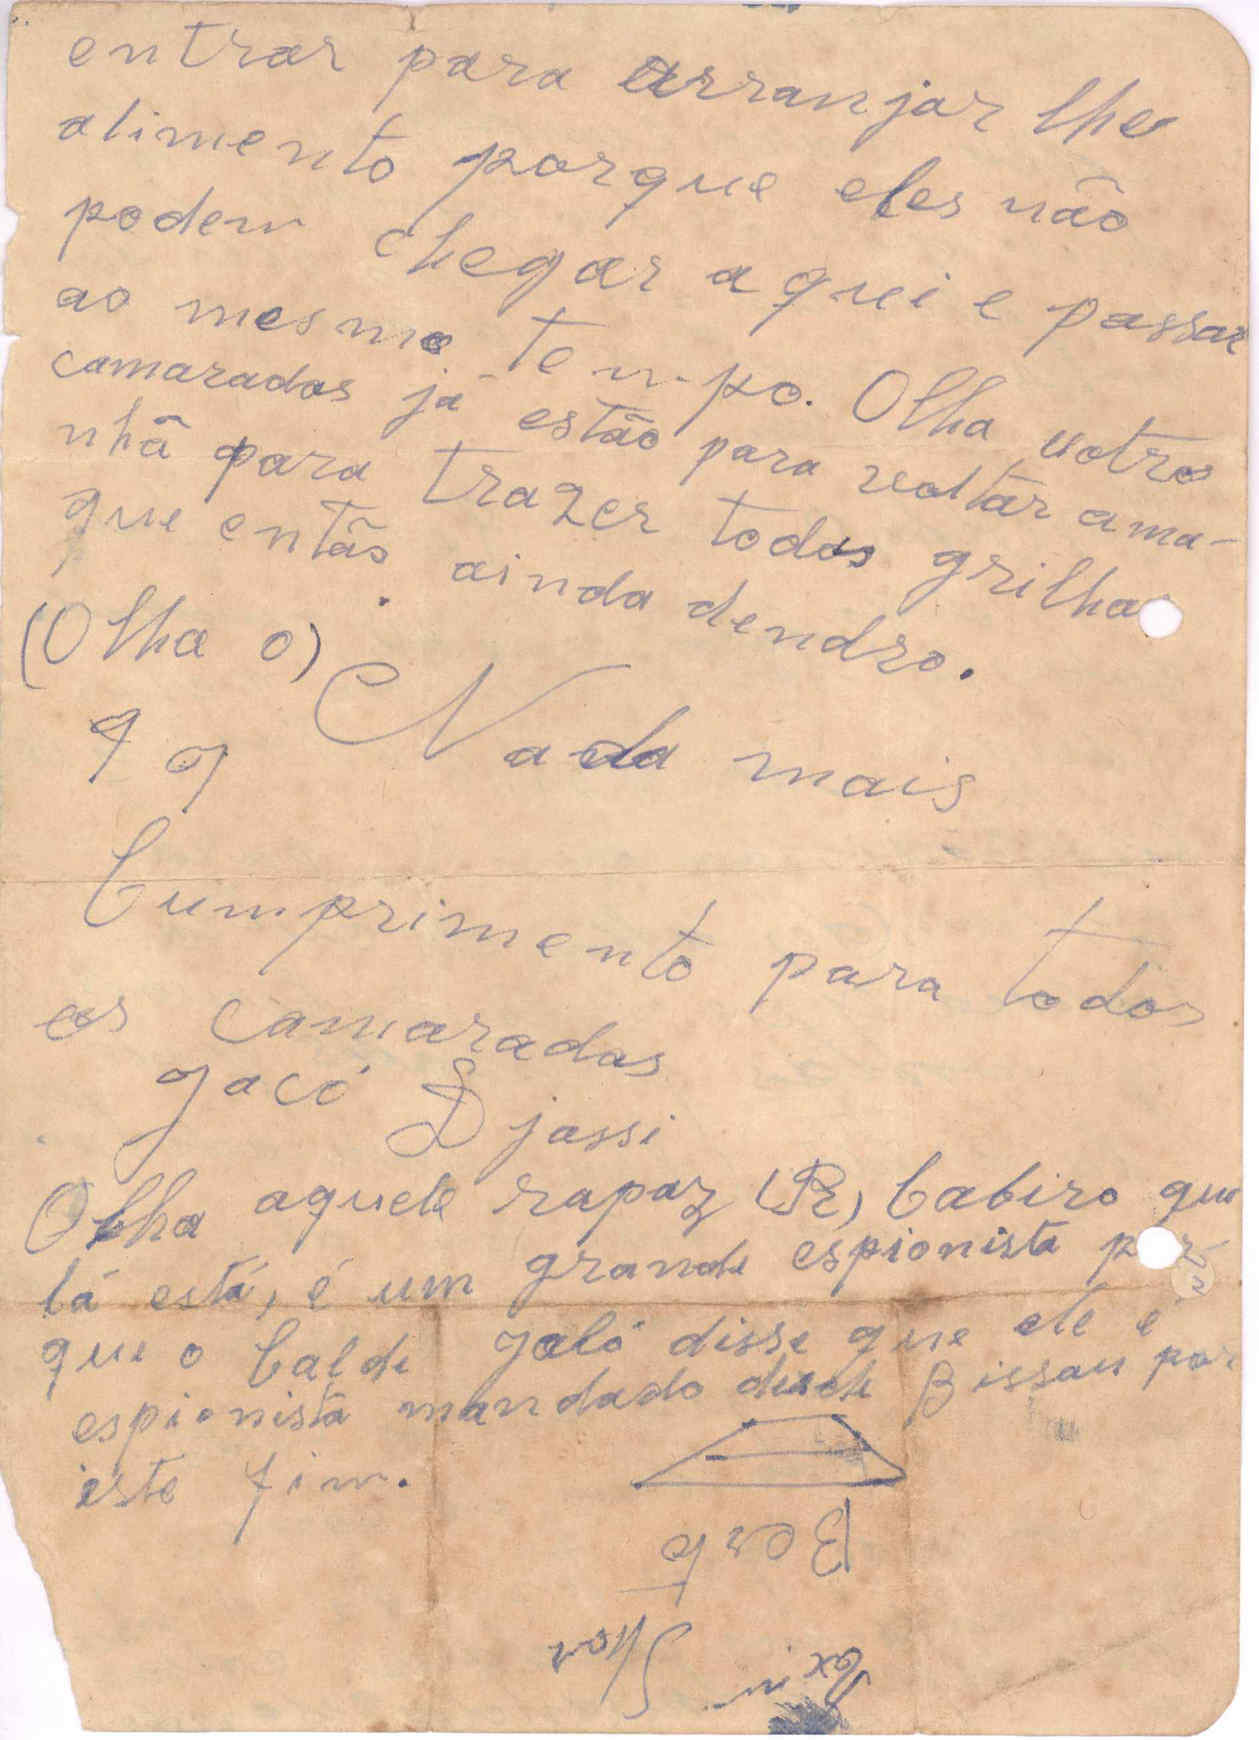 entrar para arranjar lhe
alimento porque eles não
podem chegar aqui e passar
ao mesmo tempo. Olha outro
camaradas já estão para voltar ama-
nhã para trazer todos grilhas
que então ainda dendro.
(Olha o)
Nada mais
Cumprimento para todos
os camaradas
Jacó Djassi
Olha aquele rapaz (R) Cabiro que
lá está, é um grande espionista por
que o Calde Jaló disse que ele é
espionista mandado desde Bissau por
iste fim.